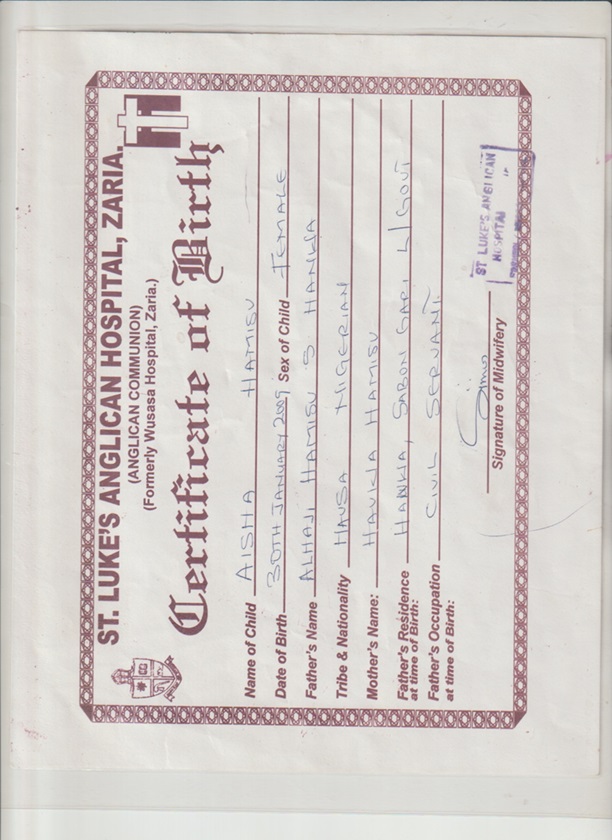 ST. LUKE'S ANGLICAN HOSPITAL, ZARIA.
(ANGLICAN COMMUNION)
(Formerly Wusasa Hospital, Zaria.)
Certificate of Birth
Name of Child AISHA HAMISU
Date of Birth 30TH JANUARY 2009 Sex of Child FEMALE
Father's Name ALHAJI HAMISU S HANWA
Tribe & Nationality HAUSA NIGERIAN
Mother's Name: HAUWA HAMISU
Father's Residence at time of Birth: HANWA, SABON GARI L/GOVT
Father's Occupation at time of Birth: CIVIL SERVANT.
Signature of Midwifery
ST LUKE'S ANGLICAN
HOSPITAL